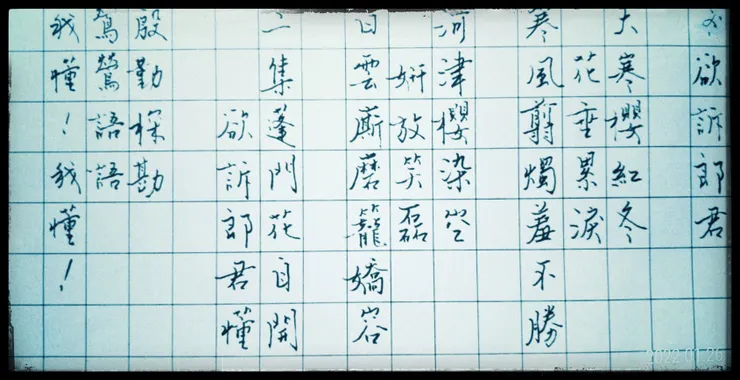 欲訴郎君
大寒櫻紅冬
花垂累淚
寒風剪燭羞不勝
河津櫻染
妍放笑磊
白雲廝磨籠嬌容
二集蓬門花自開
欲訴郎君懂
殷勤探勘
鶯鶯語語
我懂！我懂！
2022.01.26